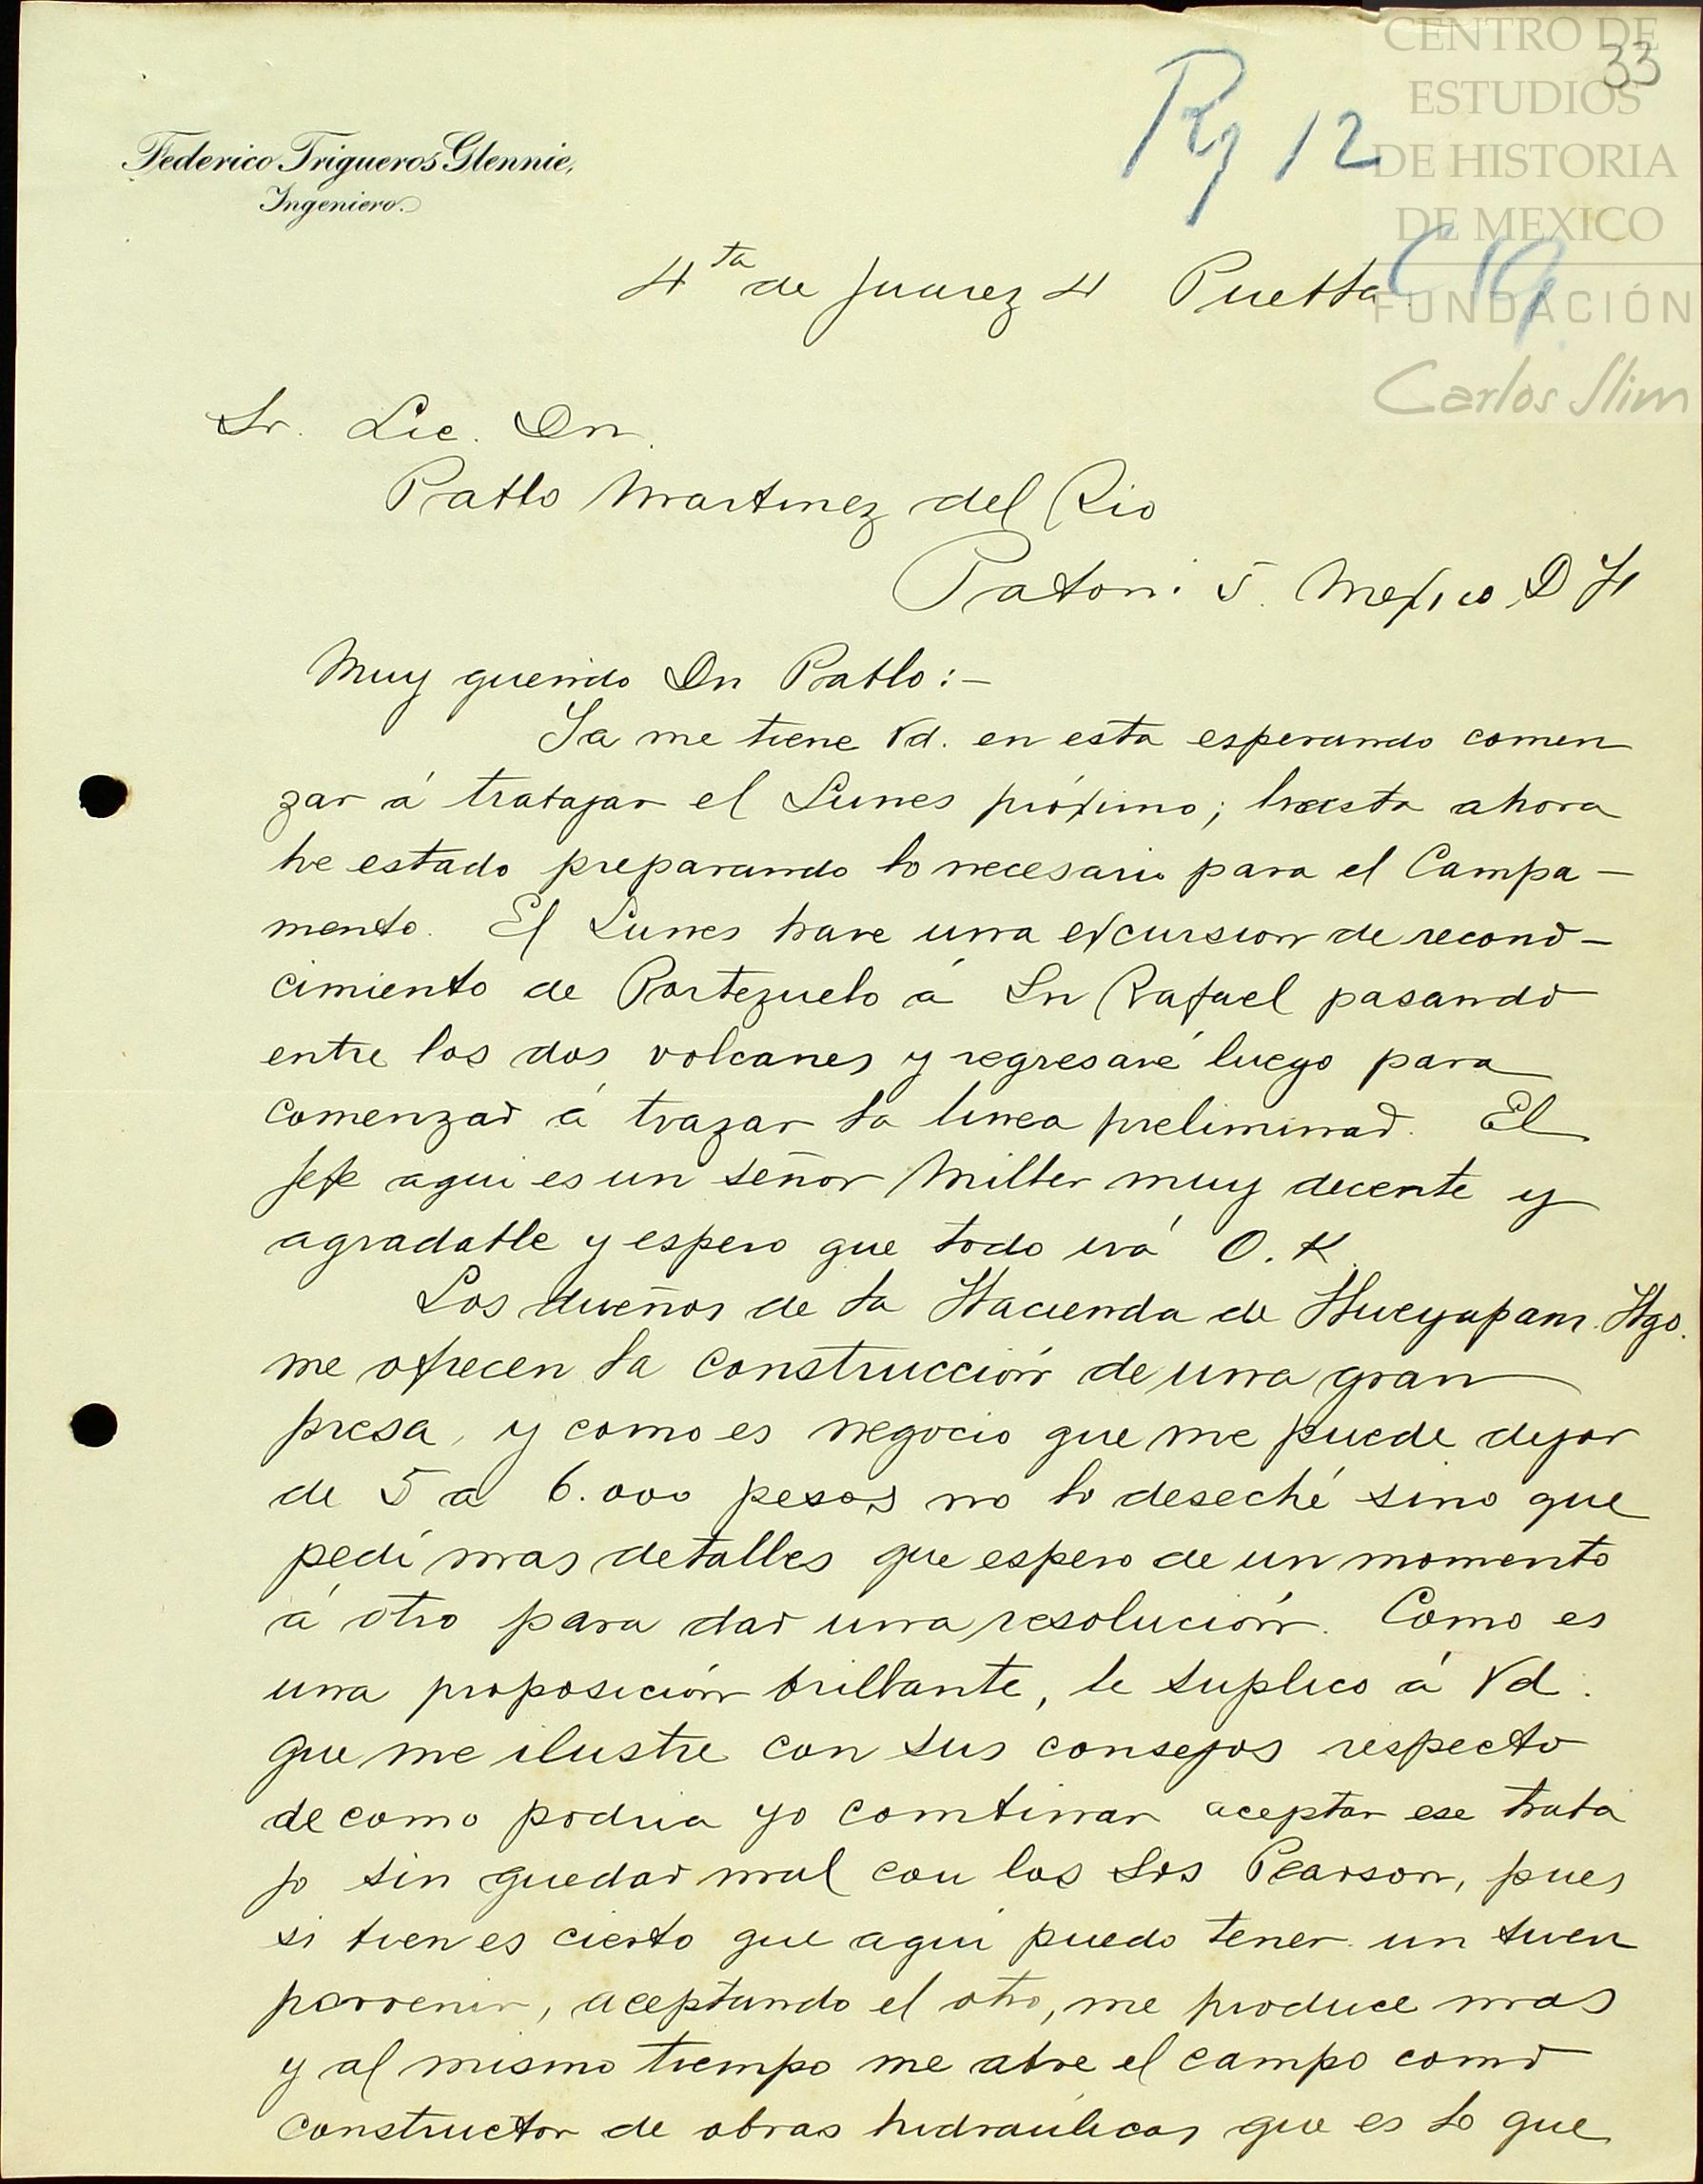 CENTRO DE
ESTUDIOS
DE HISTORIA
DE MEXICO
FUNDACIÓN
Carlos Slim
33
Rg 12
C 19
Federico Trigueros Glennie,
Ingeniero.
4ta de Juarez 4 Puebla
Sr. Lic. Dn.
Pablo Martinez del Rio
Patoni 5. Mexico, D F
Muy querido Dn Pablo:-
Ya me tiene Vd. en esta esperando comen
zar á trabajar el Lunes próximo; hasta ahora
he estado preparando lo necesario para el Campa-
mento. El Lunes haré una excursion de recono-
cimiento de Portezuelo á Sn Rafael pasando
entre los dos volcanes y regresaré luego para
comenzar á trazar la linea preliminar. El
Jefe aqui es un señor Miller muy decente y
agradable y espero que todo irá O.K.
Los dueños de la Hacienda de Hueyapam. Hgo.
me ofrecen la construcción de una gran
presa, y como es negocio que me puede dejar
de 5 a 6.000 pesos no lo deseché sino que
pedí mas detalles que espero de un momento
á otro para dar una resolución. Como es
una proposición brillante, le suplico á Vd.
que me ilustre con sus consejos respecto
de como podria yo combinar aceptar ese traba
jo sin quedar mal con los Srs Pearson, pues
si bien es cierto que aqui puedo tener un buen
porvenir, aceptando el otro, me produce mas
y al mismo tiempo me abre el campo como
constructor de obras hidraúlicas que es lo que